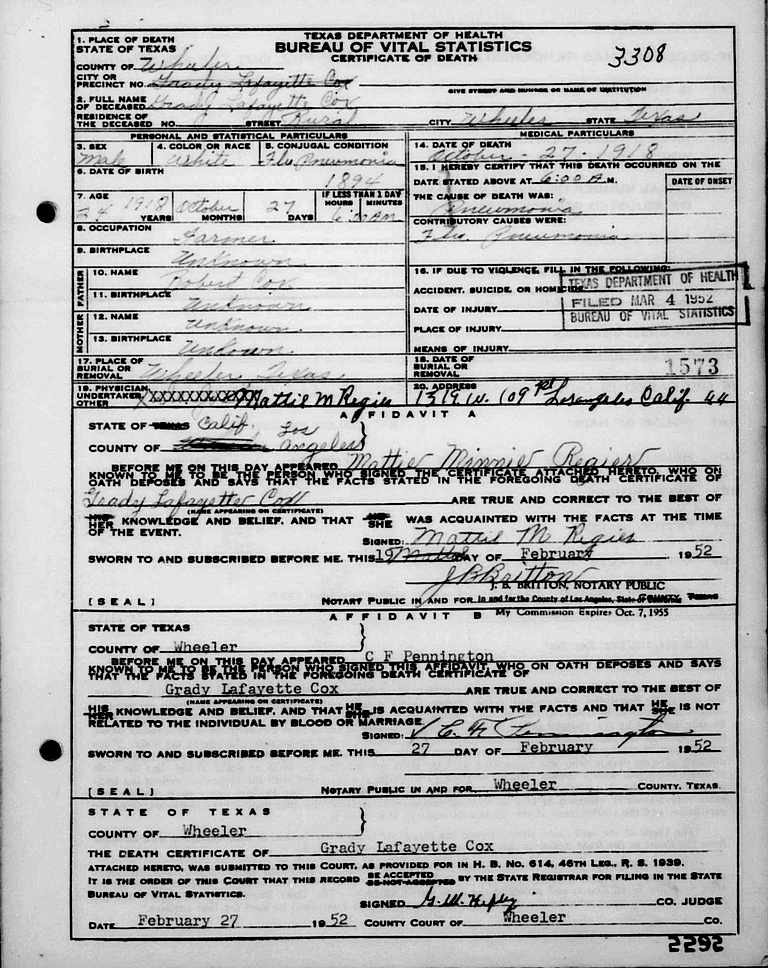 TEXAS DEPARTMENT OF HEALTH
BUREAU OF VITAL STATISTICS
CERTIFICATE OF DEATH
3308
1. PLACE OF DEATH
STATE OF TEXAS
COUNTY OF Wheeler
CITY OR
PRECINCT NO. Grady Lafayette Cox
GIVE STREET AND NUMBER OR NAME OF INSTITUTION
2. FULL NAME
OF DECEASED Grady Lafayette Cox
RESIDENCE OF
THE DECEASED NO. STREET Rural CITY Wheeler STATE Texas
PERSONAL AND STATISTICAL PARTICULARS
3. SEX Male
4. COLOR OR RACE White
5. CONJUGAL CONDITION Flu Pneumonia
6. DATE OF BIRTH 1894
7. AGE 24 1918 YEARS October MONTHS 27 DAYS
IF LESS THAN 1 DAY
HOURS MINUTES
6:00 AM
8. OCCUPATION Farmer
9. BIRTHPLACE Unknown
FATHER
10. NAME Robert Cox
11. BIRTHPLACE Unknown
MOTHER
12. NAME Unknown
13. BIRTHPLACE Unkown
17. PLACE OF
BURIAL OR
REMOVAL Wheeler Texas
19. PHYSICIAN
UNDERTAKER
OTHER XXXXXXXXXXX Mattie M Regier
MEDICAL PARTICULARS
14. DATE OF DEATH
October - 27 - 1918
15. I HEREBY CERTIFY THAT THIS DEATH OCCURRED ON THE
DATE STATED ABOVE AT 6:00 A.M.
DATE OF ONSET
THE CAUSE OF DEATH WAS:
Pneumonia
CONTRIBUTORY CAUSES WERE:
Flu Pneumonia
16. IF DUE TO VIOLENCE, FILL IN THE FOLLOWING:
ACCIDENT, SUICIDE, OR HOMICIDE
DATE OF INJURY
PLACE OF INJURY
MEANS OF INJURY
TEXAS DEPARTMENT OF HEALTH
FILED MAR 4 1952
BUREAU OF VITAL STATISTICS
18. DATE OF
BURIAL OR
REMOVAL
1573
20. ADDRESS
1319 W. 109 Los angeles Calif. 44
AFFIDAVIT A
STATE OF TEXAS Calif.
COUNTY OF Los Angeles
BEFORE ME ON THIS DAY APPEARED Mattie Minnie Regier
KNOWN TO ME TO BE THE PERSON WHO SIGNED THE CERTIFICATE ATTACHED HERETO, WHO ON
OATH DEPOSES AND SAYS THAT THE FACTS STATED IN THE FOREGOING DEATH CERTIFICATE OF
Grady Lafayette Cox ARE TRUE AND CORRECT TO THE BEST OF
(NAME APPEARING ON CERTIFICATE)
HIS
HER KNOWLEDGE AND BELIEF, AND THAT HE SHE WAS ACQUAINTED WITH THE FACTS AT THE TIME
OF THE EVENT.
SIGNED: Mattie M Regier
SWORN TO AND SUBSCRIBED BEFORE ME, THIS 19 DAY OF February 1952
J B Britton
J. B. BRITTON, NOTARY PUBLIC
[SEAL] NOTARY PUBLIC IN AND FOR In and for the County of Los Angeles, State of California COUNTY, TEXAS
My Commission Expires Oct. 7, 1955
AFFIDAVIT B
STATE OF TEXAS
COUNTY OF Wheeler
BEFORE ME ON THIS DAY APPEARED C F Pennington
KNOWN TO ME TO BE THE PERSON WHO SIGNED THIS AFFIDAVIT, WHO ON OATH DEPOSES AND SAYS
THAT THE FACTS STATED IN THE FOREGOING DEATH CERTIFICATE OF
Grady Lafayette Cox ARE TRUE AND CORRECT TO THE BEST OF
(NAME APPEARING ON CERTIFICATE)
HIS
HER KNOWLEDGE AND BELIEF, AND THAT HE SHE IS ACQUAINTED WITH THE FACTS AND THAT HE SHE IS NOT
RELATED TO THE INDIVIDUAL BY BLOOD OR MARRIAGE.
SIGNED: C. F. Pennington
SWORN TO AND SUBSCRIBED BEFORE ME, THIS 27 DAY OF February 1952
[SEAL] NOTARY PUBLIC IN AND FOR Wheeler COUNTY, TEXAS.
STATE OF TEXAS
COUNTY OF Wheeler
THE DEATH CERTIFICATE OF Grady Lafayette Cox
ATTACHED HERETO, WAS SUBMITTED TO THIS COURT, AS PROVIDED FOR IN H. B. NO. 614, 46TH LEG., R. S. 1939.
IT IS THE ORDER OF THIS COURT THAT THIS RECORD BE ACCEPTED BE NOT ACCEPTED BY THE STATE REGISTRAR FOR FILING IN THE STATE
BUREAU OF VITAL STATISTICS.
SIGNED CO. JUDGE
DATE February 27 1952 COUNTY COURT OF Wheeler CO.
2292